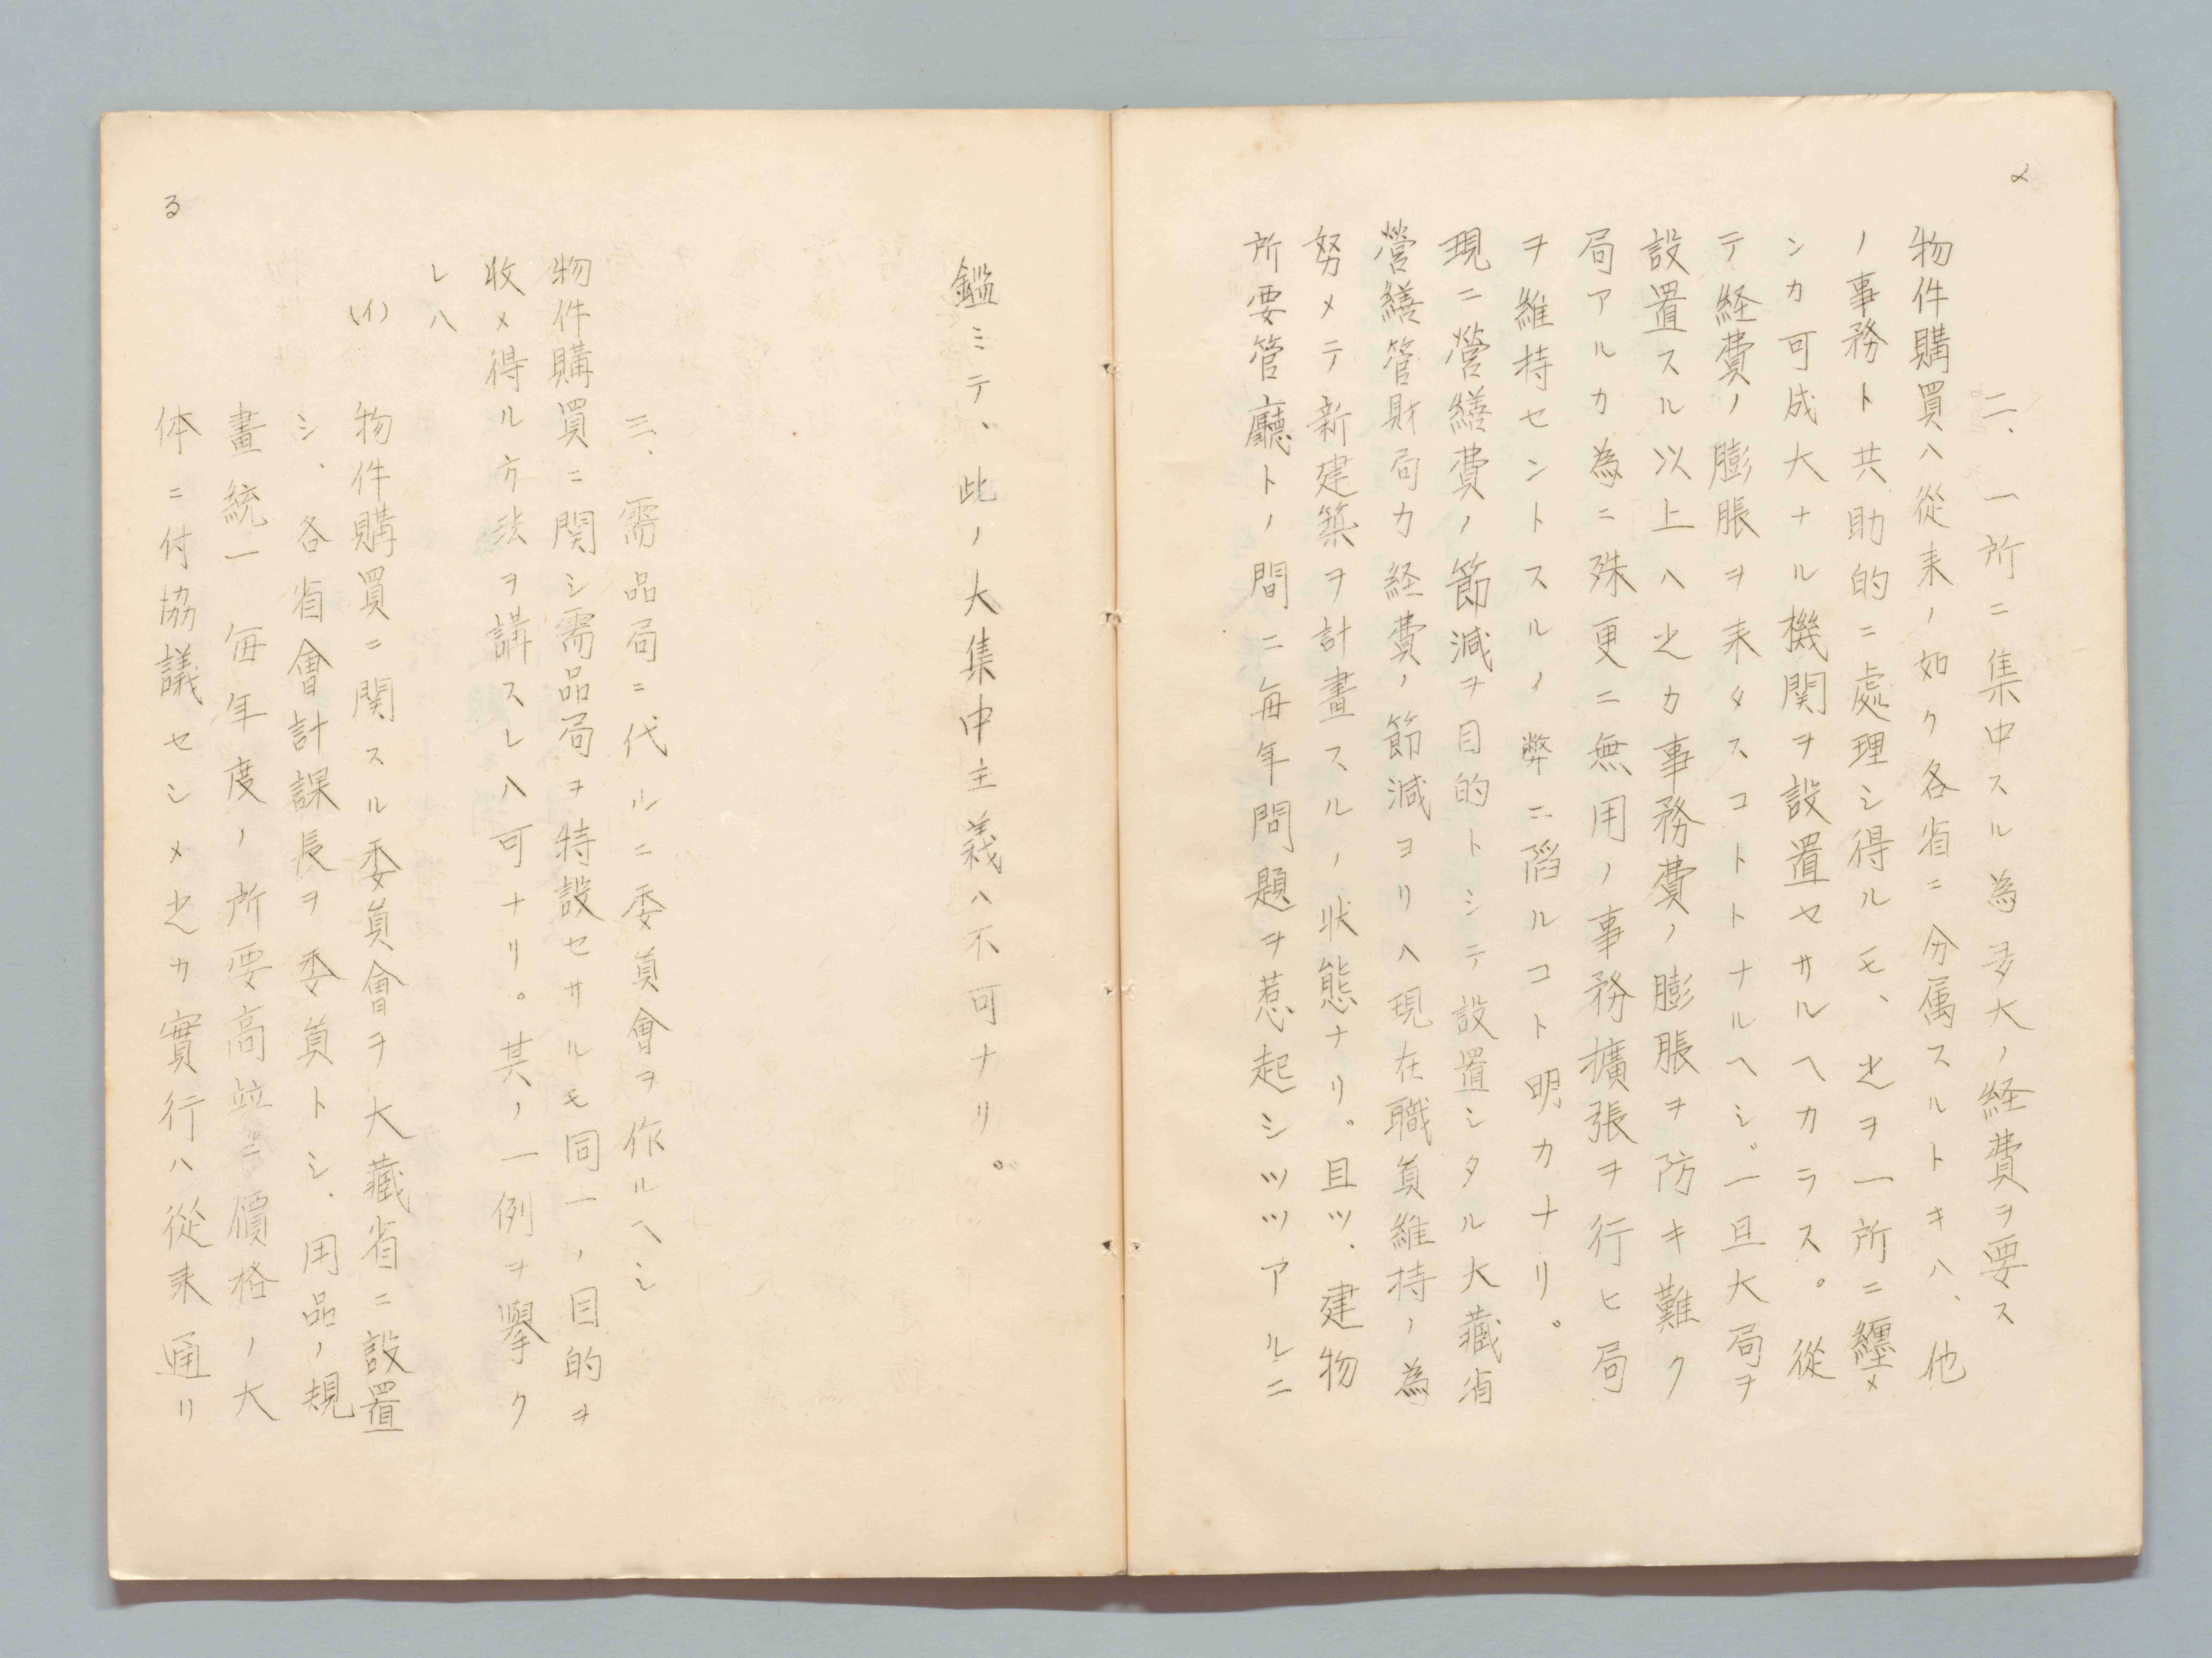 二、一所ニ集中スル為多大ノ経費ヲ要ス
物件購買ハ從来ノ如ク各省ニ分属スルトキハ、他
ノ事務ト共助的ニ處理シ得ルモ、之ヲ一所ニ纒メ
ンカ可成大ナル機関ヲ設置セサルヘカラス。從
テ経費ノ膨脹ヲ来タスコトトナルヘシ。一旦大局ヲ
設置スル以上ハ之カ事務費ノ膨脹ヲ防キ難ク
局アルカ為ニ殊更ニ無用ノ事務擴張ヲ行ヒ局
ヲ維持セントスルノ弊ニ陷ルコト明カナリ。
現ニ營繕費ノ節減ヲ目的トシテ設置シタル大藏省
營繕管財局カ経費ノ節減ヨリハ現在職員維持ノ為
努メテ新建築ヲ計畫スルノ状態ナリ。且ツ、建物
所要管廳トノ間ニ毎年問題ヲ惹起シツツアルニ
鑑ミテ、此ノ大集中主義ハ不可ナリ。
三、需品局ニ代ルニ委員會ヲ作ルヘシ
物件購買ニ関シ需品局ヲ特設セサルモ同一ノ目的ヲ
收メ得ル方法ヲ講スレハ可ナリ。其ノ一例ヲ擧ク
レハ
(イ) 物件購買ニ関スル委員會ヲ大藏省ニ設置
シ、各省會計課長ヲ委員トシ、用品ノ規
畫統一 毎年度ノ所要高竝ニ價格ノ大
体ニ付協議セシメ之カ實行ハ從来通リ